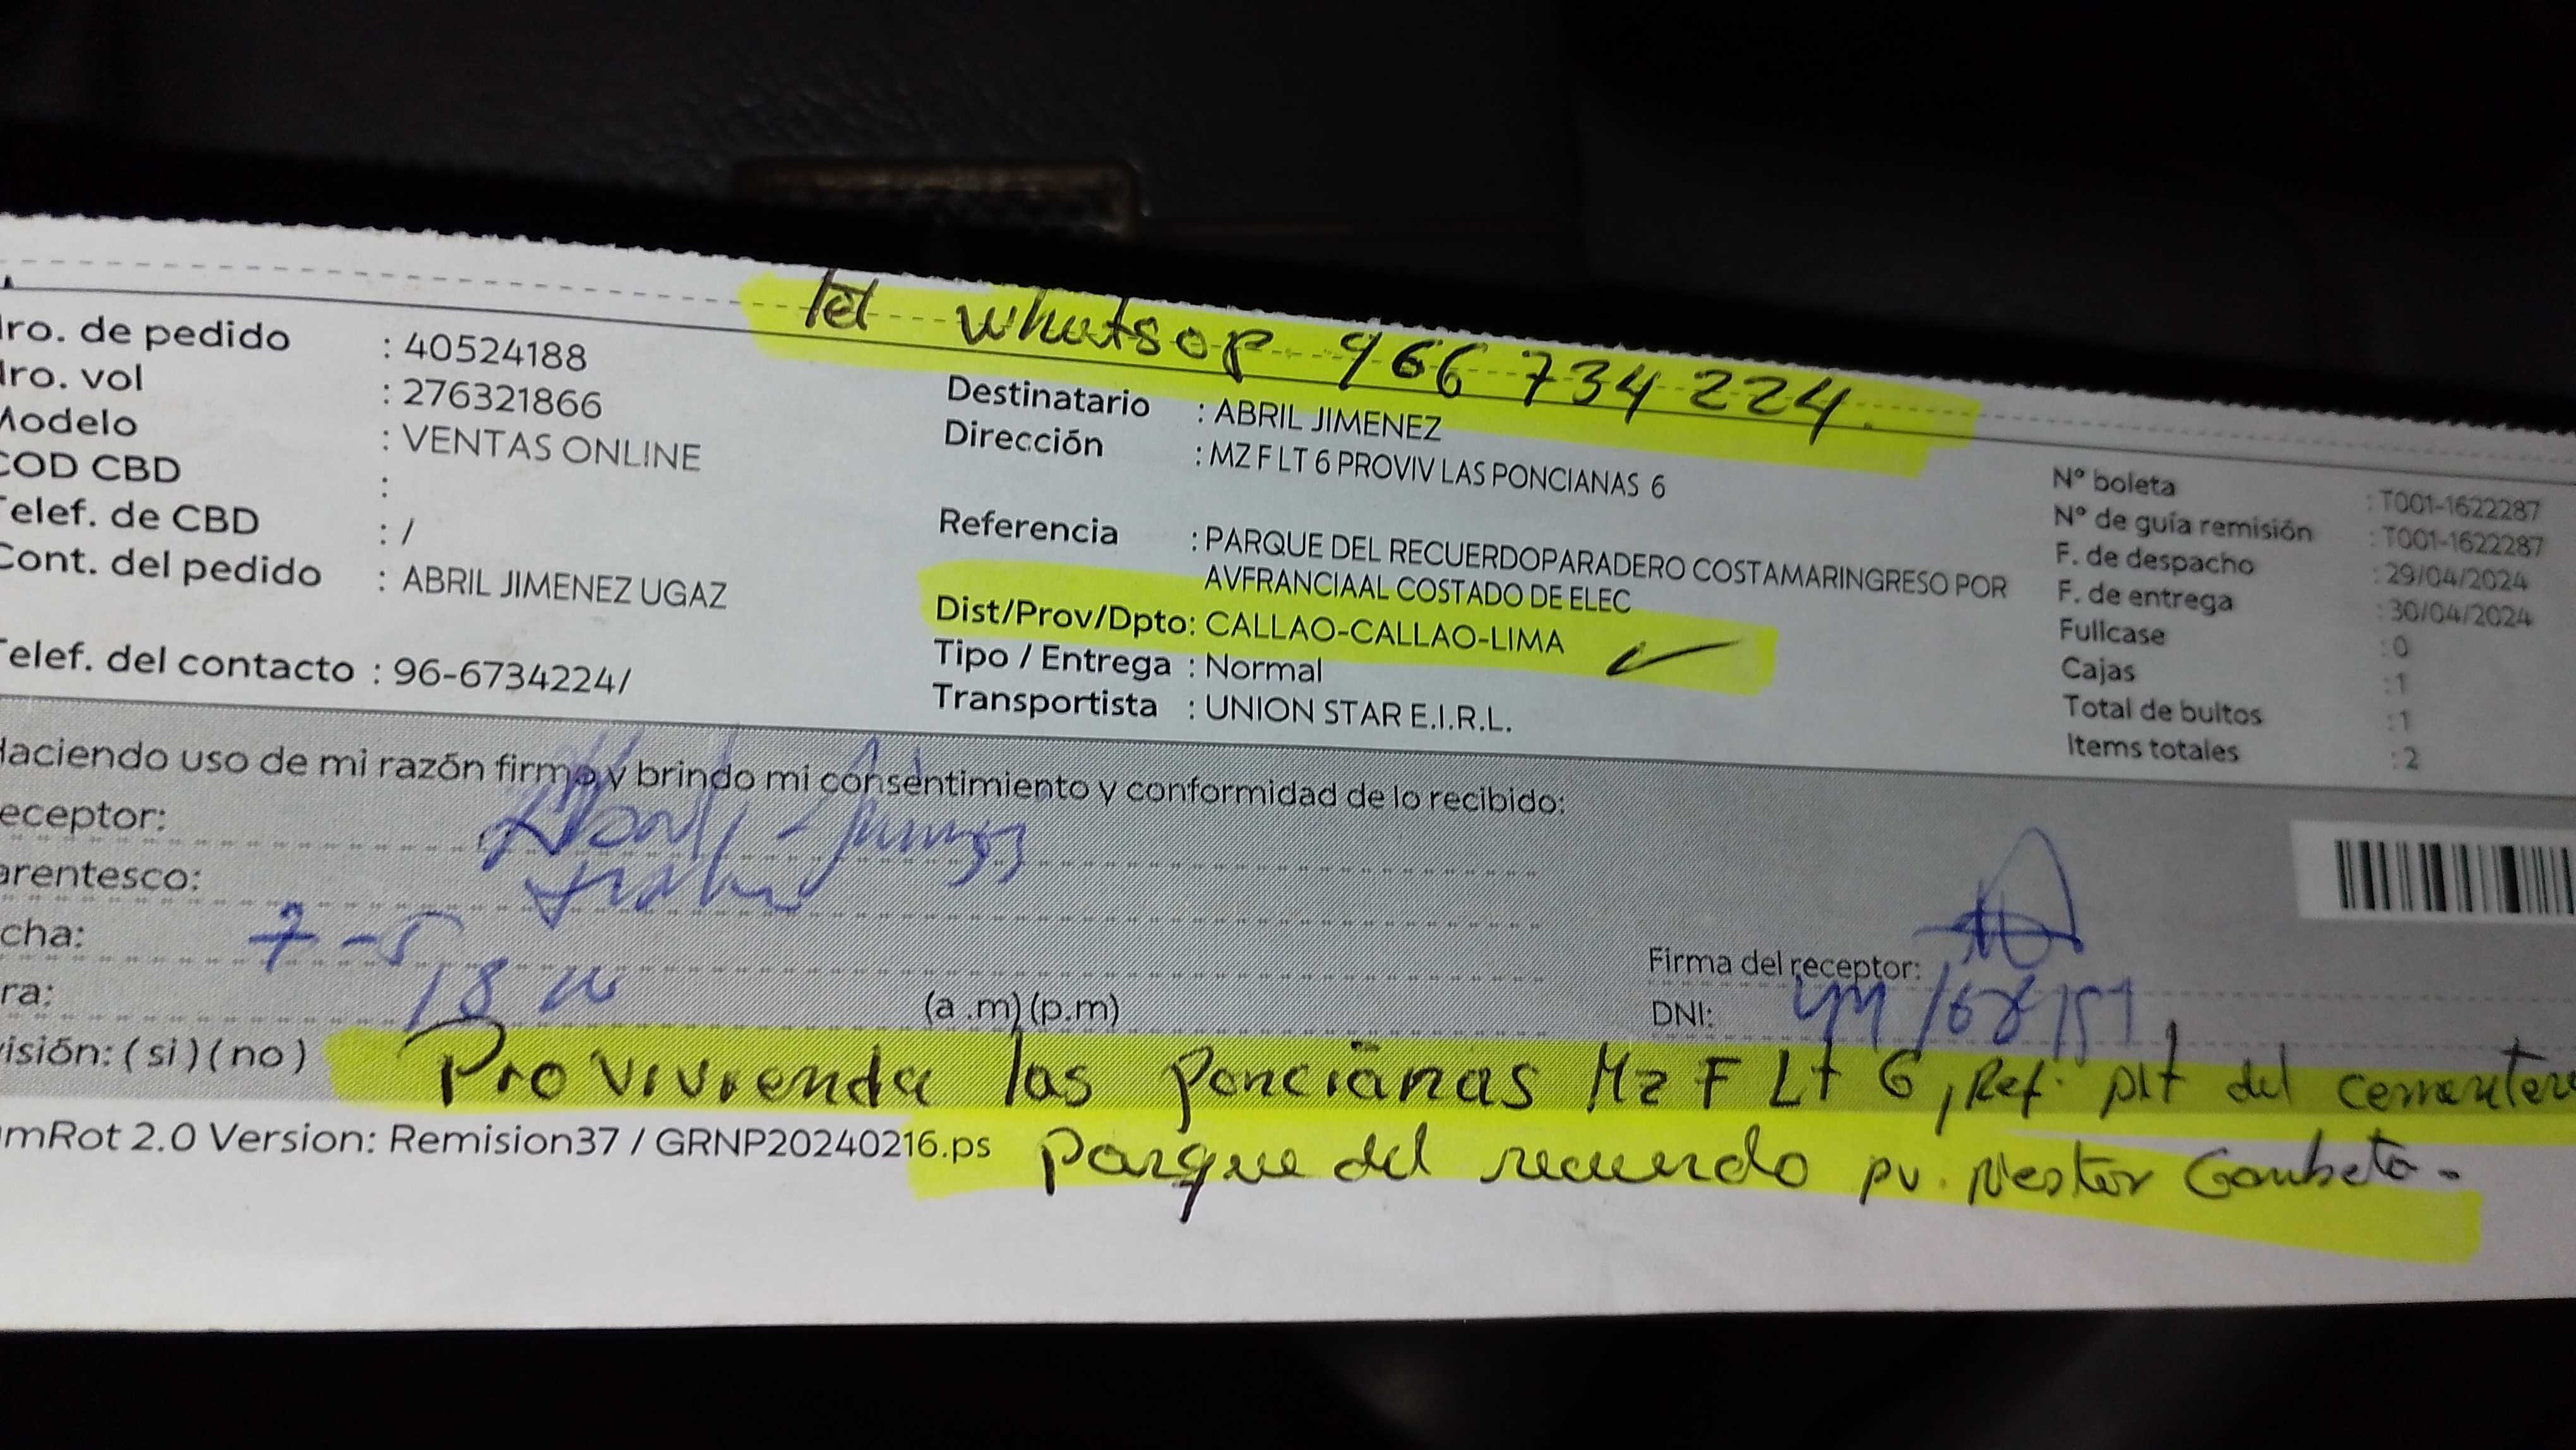 Tel whatsop 966 734 224.
ro. de pedido : 40524188
ro. vol : 276321866
Modelo : VENTAS ONLINE
COD CBD :
Telef. de CBD : /
Cont. del pedido : ABRIL JIMENEZ UGAZ
Telef. del contacto : 96-6734224/
Destinatario : ABRIL JIMENEZ
Dirección : MZ F LT 6 PROVIV LAS PONCIANAS 6
Referencia : PARQUE DEL RECUERDOPARADERO COSTAMARINGRESO POR
AVFRANCIAAL COSTADO DE ELEC
Dist/Prov/Dpto: CALLAO-CALLAO-LIMA
Tipo / Entrega : Normal
Transportista : UNION STAR E.I.R.L.
N° boleta : T001-1622287
N° de guía remisión : T001-1622287
F. de despacho : 29/04/2024
F. de entrega : 30/04/2024
Fullcase : 0
Cajas : 1
Total de bultos : 1
Items totales : 2
Haciendo uso de mi razón firmo y brindo mi consentimiento y conformidad de lo recibido:
eceptor:
arentesco:
cha: 7-5
ra: 18 (a .m) (p.m)
Firma del receptor:
DNI:
isión: ( si ) ( no )
Pro vivienda las poncianas Mz F Lt 6, Ref.
del cementer
mRot 2.0 Version: Remision37 / GRNP20240216.ps
Parque del recuerdo Nestor Gambeta.